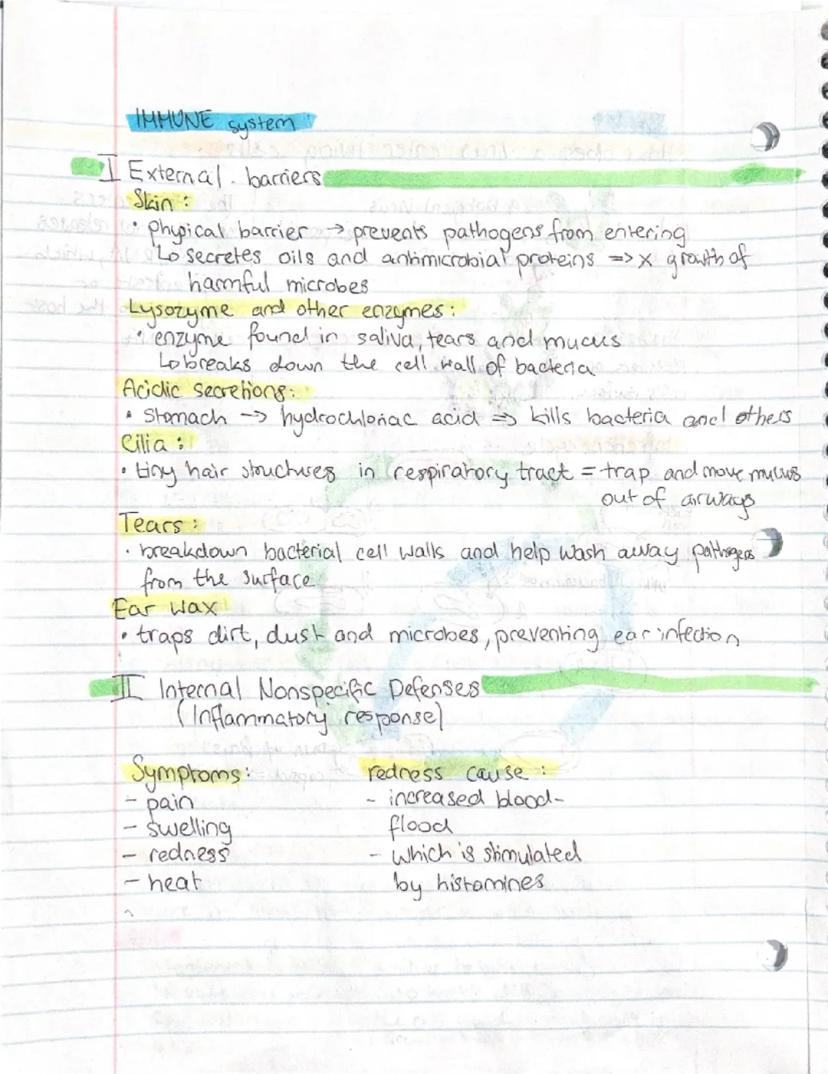 IMMUNE system
I External barriers
Skin :
• Physical barrier → prevents pathogens from entering
↳ secretes oils and antimicrobial proteins => x growth of
harmful microbes
Lysozyme and other enzymes :
• enzyme found in saliva, tears and mucus
↳ breaks down the cell wall of bacteria
Acidic secretions :
• Stomach → hydrochloriac acid => kills bacteria and others
Cilia :
• tiny hair structures in respiratory tract = trap and move mucus
out of airways
Tears :
• breakdown bacterial cell walls and help wash away pathogens
from the surface
Ear wax
• traps dirt, dust and microbes, preventing ear infection
II Internal Nonspecific Defenses
(Inflammatory response)
Symptoms :
- pain
- swelling
- redness
- heat
redness cause :
- increased blood-
flood
- which is stimulated
by histamines